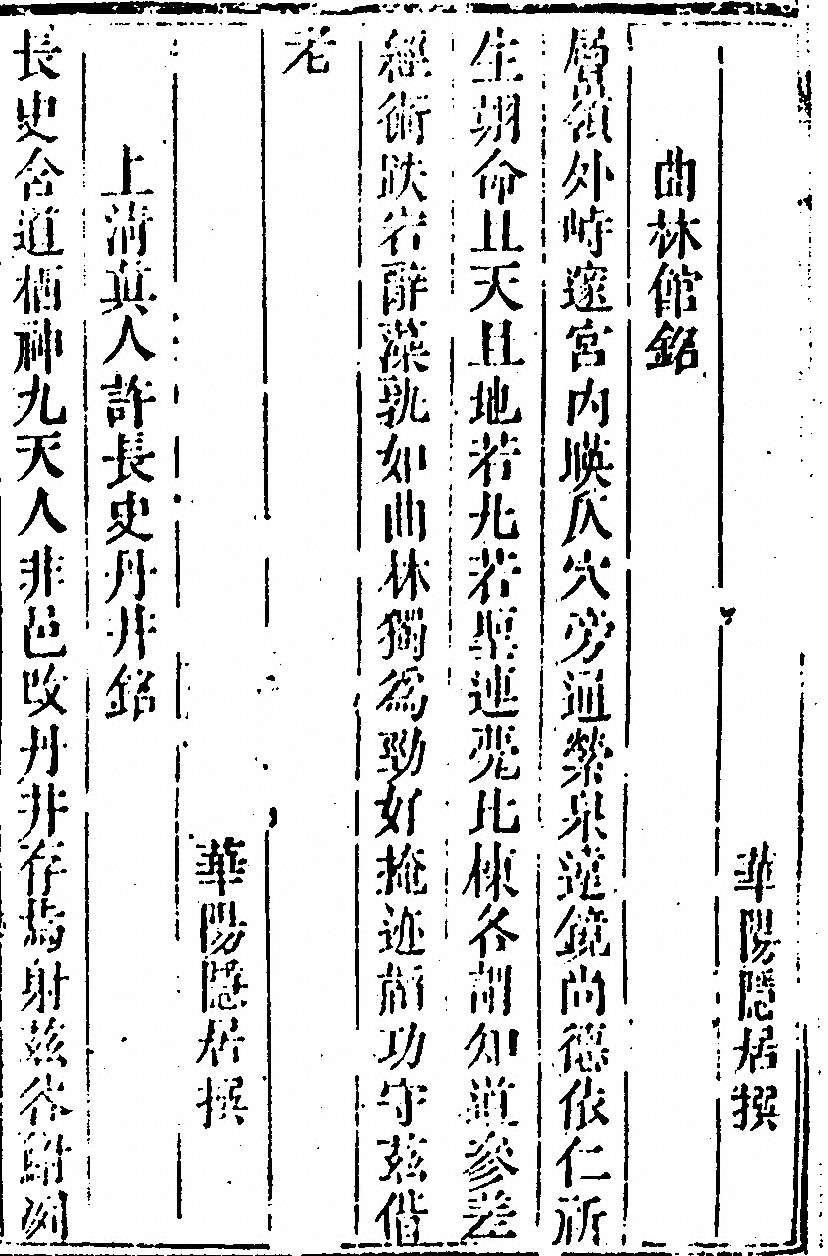 華陽隱居撰
曲林館銘
層嶺外峙邃宮內映仄穴旁通縈泉遠鏡尚德依仁祈
生翊命且天且地若凡若聖連甍比棟各謂知道參差
經術跌宕辭藻孰如曲林獨為勁好掩迹韜功守茲偕
老
華陽隱居撰
上清真人許長史丹井銘
長史含道栖神九天人非邑改丹井存焉射茲谷鮒冽